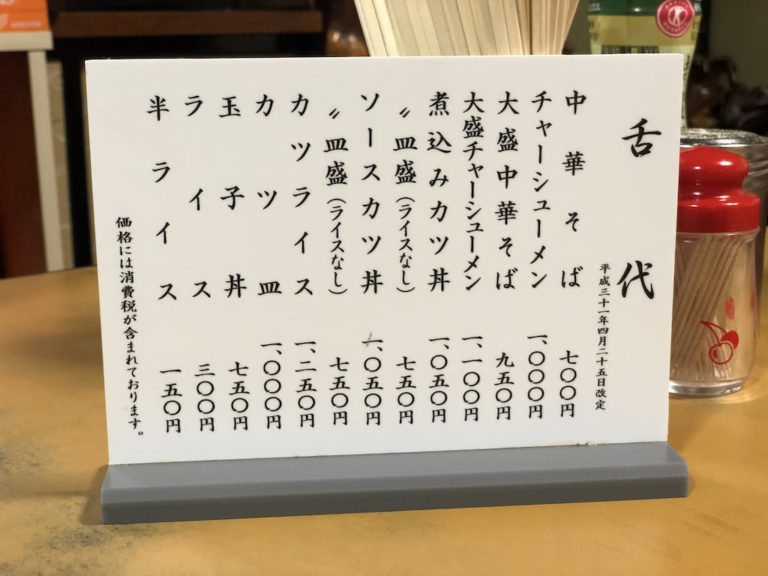 舌代
平成三十一年四月二十五日改定
中華そば 七〇〇円
チャーシューメン 一、〇〇〇円
大盛中華そば 九五〇円
大盛チャーシューメン 一、一〇〇円
煮込みカツ丼 一、〇五〇円
〃皿盛（ライスなし） 七五〇円
ソースカツ丼 一、〇五〇円
〃皿盛（ライスなし） 七五〇円
カツライス 一、二五〇円
カツ皿 一、〇〇〇円
玉子丼 七五〇円
ライス 三〇〇円
半ライス 一五〇円
価格には消費税が含まれております。